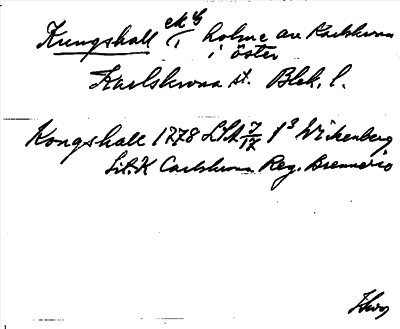 Kungshall holme av Karlskrona
i öster
Karlskrona st. Blek. l.
Kongshall 1778 LSA 7/17 f3 Wikenberg
Lit. K Carlskrona Reg. Brennerio